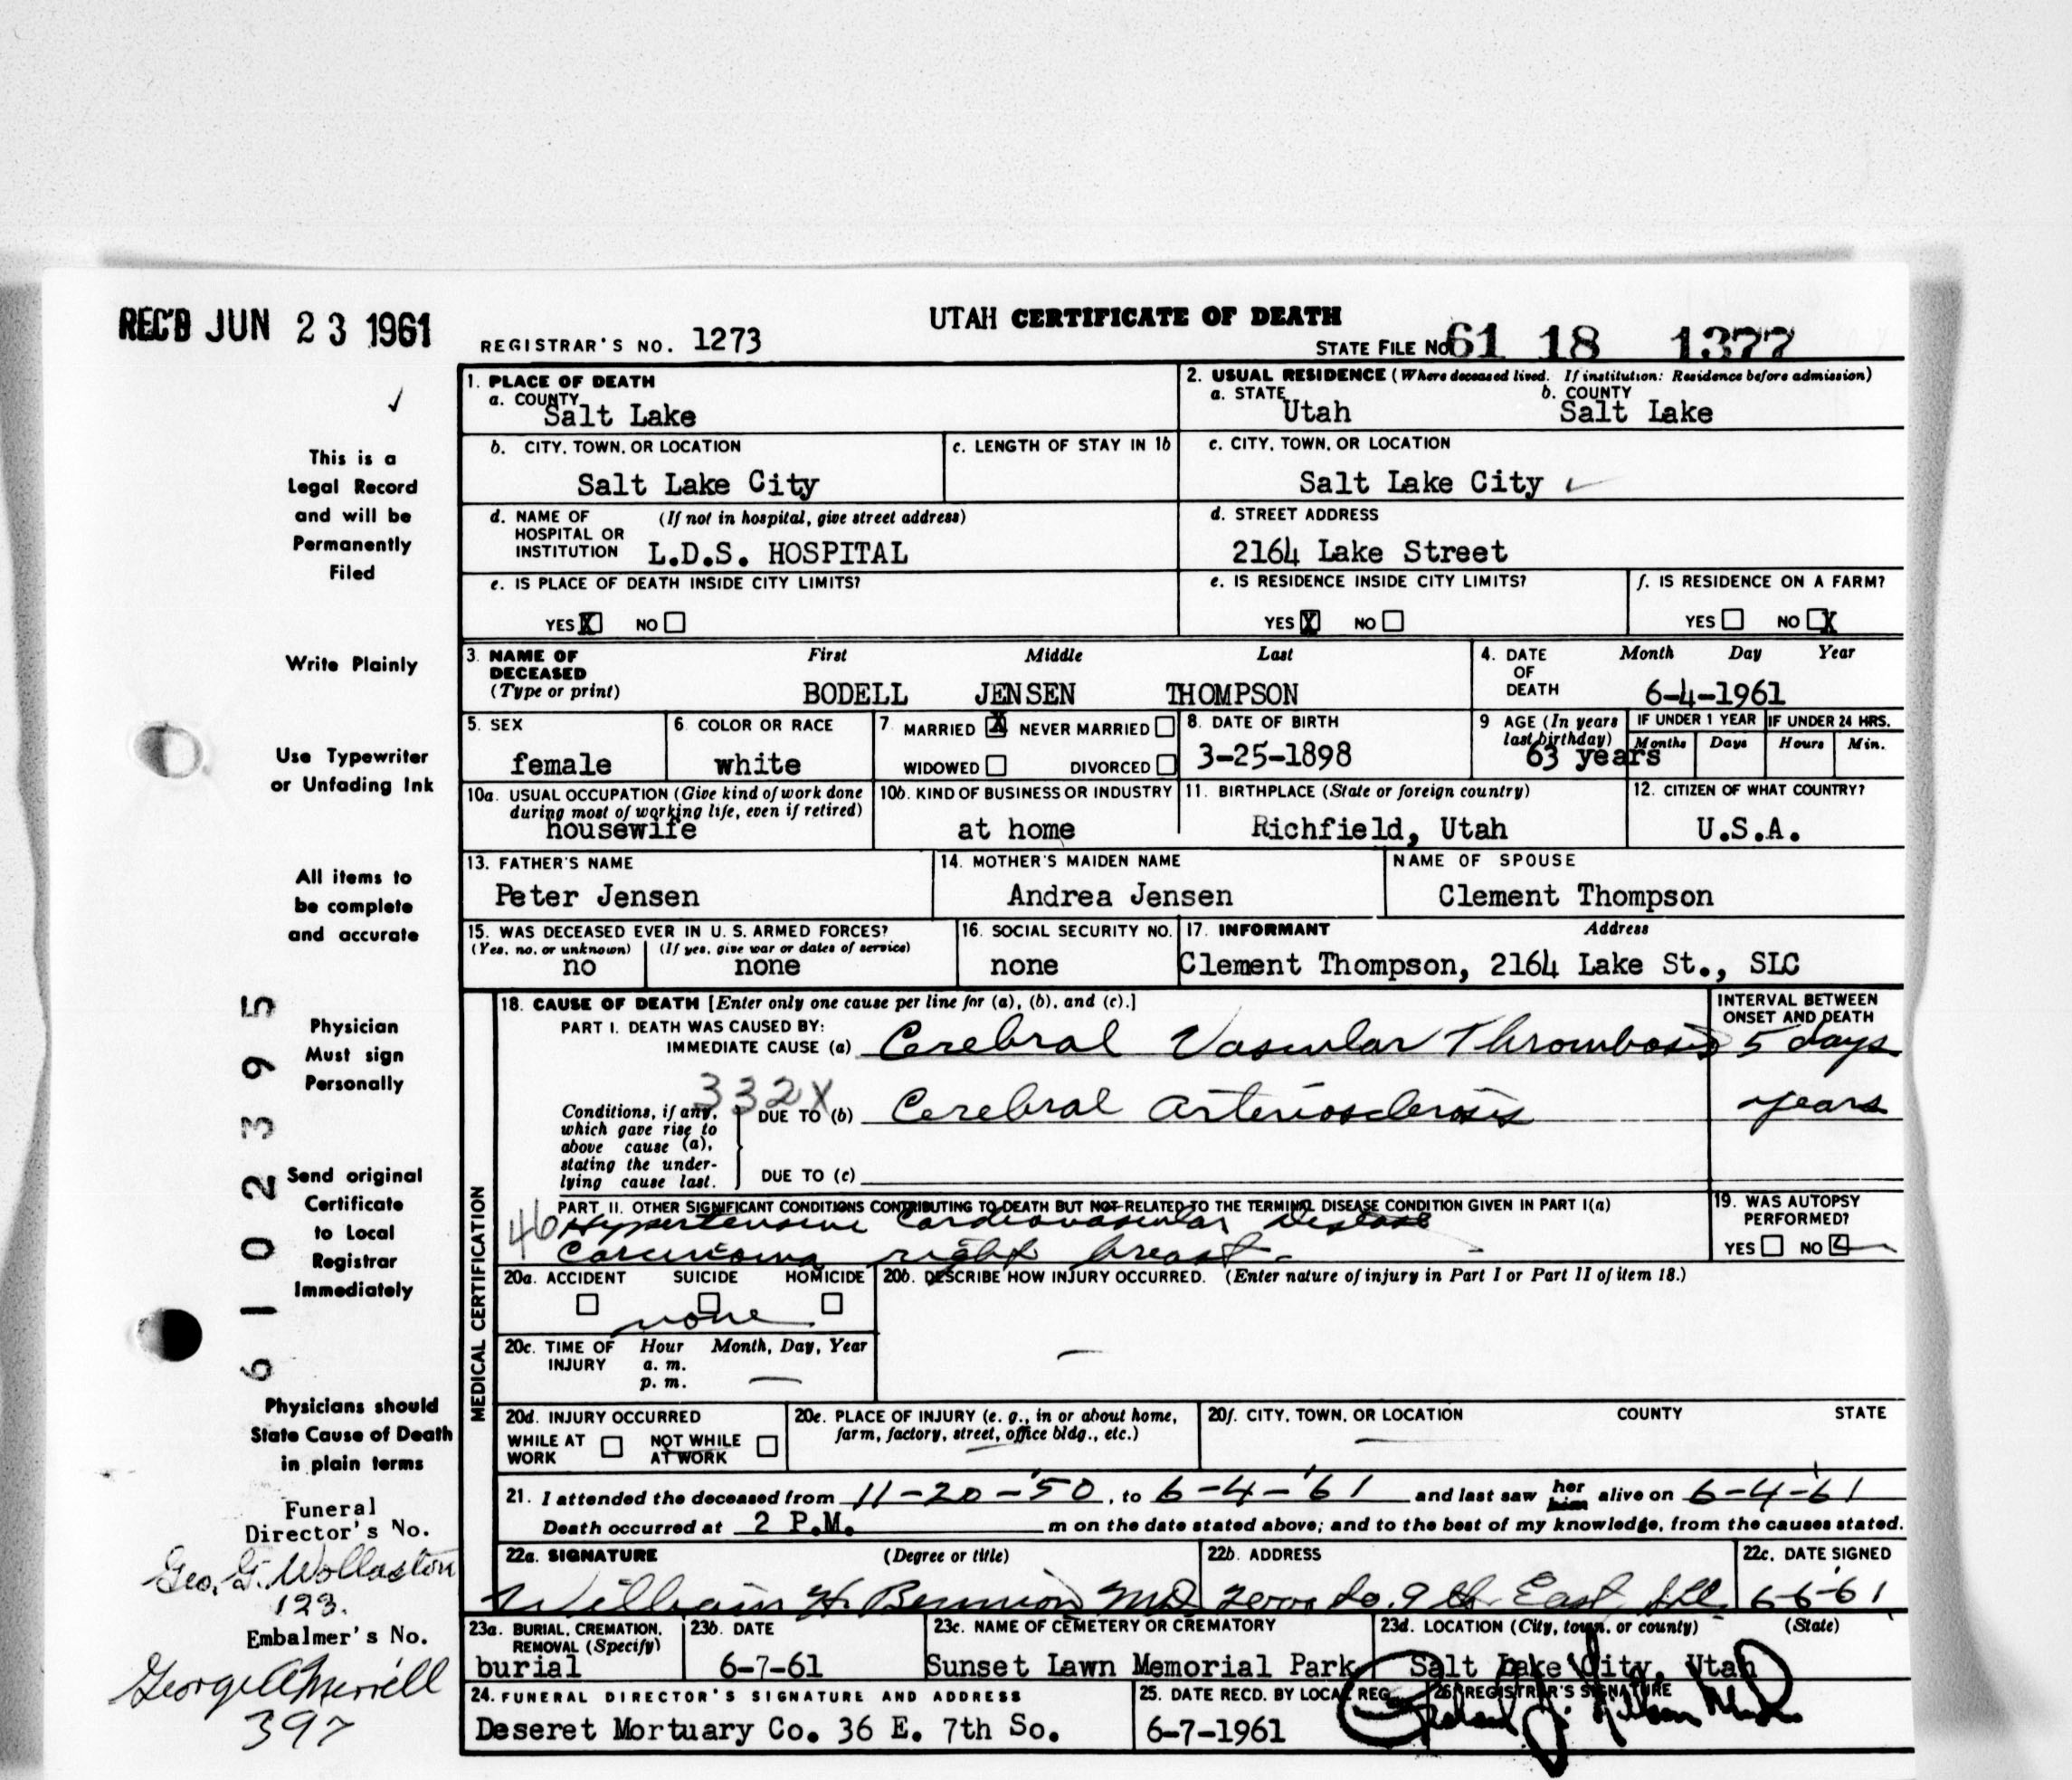 REC'D JUN 23 1961
UTAH CERTIFICATE OF DEATH
REGISTRAR'S NO. 1273
STATE FILE NO. 61 18 1377
This is a
Legal Record
and will be
Permanently
Filed
Write Plainly
Use Typewriter
or Unfading Ink
All items to
be complete
and accurate
Physician
Must sign
Personally
Send original
Certificate
to Local
Registrar
Immediately
Physicians should
State Cause of Death
in plain terms
Funeral
Director's No.
Geo. G. Wollaston
123.
Embalmer's No.
George A Merrell
397
61 02395
1. PLACE OF DEATH
a. COUNTY
Salt Lake
2. USUAL RESIDENCE (Where deceased lived. If institution: Residence before admission)
a. STATE Utah
b. COUNTY Salt Lake
b. CITY, TOWN, OR LOCATION
Salt Lake City
c. LENGTH OF STAY IN 1b
c. CITY, TOWN, OR LOCATION
Salt Lake City
d. NAME OF HOSPITAL OR INSTITUTION (If not in hospital, give street address)
L.D.S. HOSPITAL
d. STREET ADDRESS
2164 Lake Street
e. IS PLACE OF DEATH INSIDE CITY LIMITS?
YES X NO
e. IS RESIDENCE INSIDE CITY LIMITS?
YES X NO
f. IS RESIDENCE ON A FARM?
YES NO X
3. NAME OF DECEASED (Type or print)
First Middle Last
BODELL JENSEN THOMPSON
4. DATE OF DEATH
Month Day Year
6-4-1961
5. SEX
female
6. COLOR OR RACE
white
7. MARRIED X NEVER MARRIED
WIDOWED DIVORCED
8. DATE OF BIRTH
3-25-1898
9 AGE (In years last birthday)
63 years
IF UNDER 1 YEAR
Months Days
IF UNDER 24 HRS.
Hours Min.
10a. USUAL OCCUPATION (Give kind of work done
during most of working life, even if retired)
housewife
10b. KIND OF BUSINESS OR INDUSTRY
at home
11. BIRTHPLACE (State or foreign country)
Richfield, Utah
12. CITIZEN OF WHAT COUNTRY?
U.S.A.
13. FATHER'S NAME
Peter Jensen
14. MOTHER'S MAIDEN NAME
Andrea Jensen
NAME OF SPOUSE
Clement Thompson
15. WAS DECEASED EVER IN U. S. ARMED FORCES?
(Yes, no, or unknown) (If yes, give war or dates of service)
no none
16. SOCIAL SECURITY NO.
none
17. INFORMANT Address
Clement Thompson, 2164 Lake St., SLC
MEDICAL CERTIFICATION
18. CAUSE OF DEATH [Enter only one cause per line for (a), (b), and (c).]
INTERVAL BETWEEN
ONSET AND DEATH
PART I. DEATH WAS CAUSED BY:
IMMEDIATE CAUSE (a) Cerebral Vascular Thrombosis 5 days
332X
Conditions, if any,
which gave rise to
above cause (a),
stating the under-
lying cause last.
DUE TO (b) Cerebral arteriosclerosis years
DUE TO (c)
PART II. OTHER SIGNIFICANT CONDITIONS CONTRIBUTING TO DEATH BUT NOT RELATED TO THE TERMINAL DISEASE CONDITION GIVEN IN PART I(a)
46 Hypertensive Cardiovascular Disease
Carcinoma right breast
19. WAS AUTOPSY
PERFORMED?
YES NO
20a. ACCIDENT SUICIDE HOMICIDE
none
20b. DESCRIBE HOW INJURY OCCURRED. (Enter nature of injury in Part I or Part II of item 18.)
20c. TIME OF INJURY Hour Month, Day, Year
a. m.
p. m.
20d. INJURY OCCURRED
WHILE AT WORK NOT WHILE AT WORK
20e. PLACE OF INJURY (e. g., in or about home,
farm, factory, street, office bldg., etc.)
20f. CITY, TOWN, OR LOCATION COUNTY STATE
21. I attended the deceased from 11-20-'50, to 6-4-'61 and last saw her him alive on 6-4-'61
Death occurred at 2 P.M. m on the date stated above; and to the best of my knowledge, from the causes stated.
22a. SIGNATURE (Degree or title)
William H. Bennion MD
22b. ADDRESS
2000 So. 9th East
22c. DATE SIGNED
6-6-61
23a. BURIAL, CREMATION,
REMOVAL (Specify)
burial
23b. DATE
6-7-61
23c. NAME OF CEMETERY OR CREMATORY
Sunset Lawn Memorial Park
23d. LOCATION (City, town, or county) (State)
Salt Lake City, Utah
24. FUNERAL DIRECTOR'S SIGNATURE AND ADDRESS
Deseret Mortuary Co. 36 E. 7th So.
25. DATE RECD. BY LOCAL REG.
6-7-1961
26. REGISTRAR'S SIGNATURE